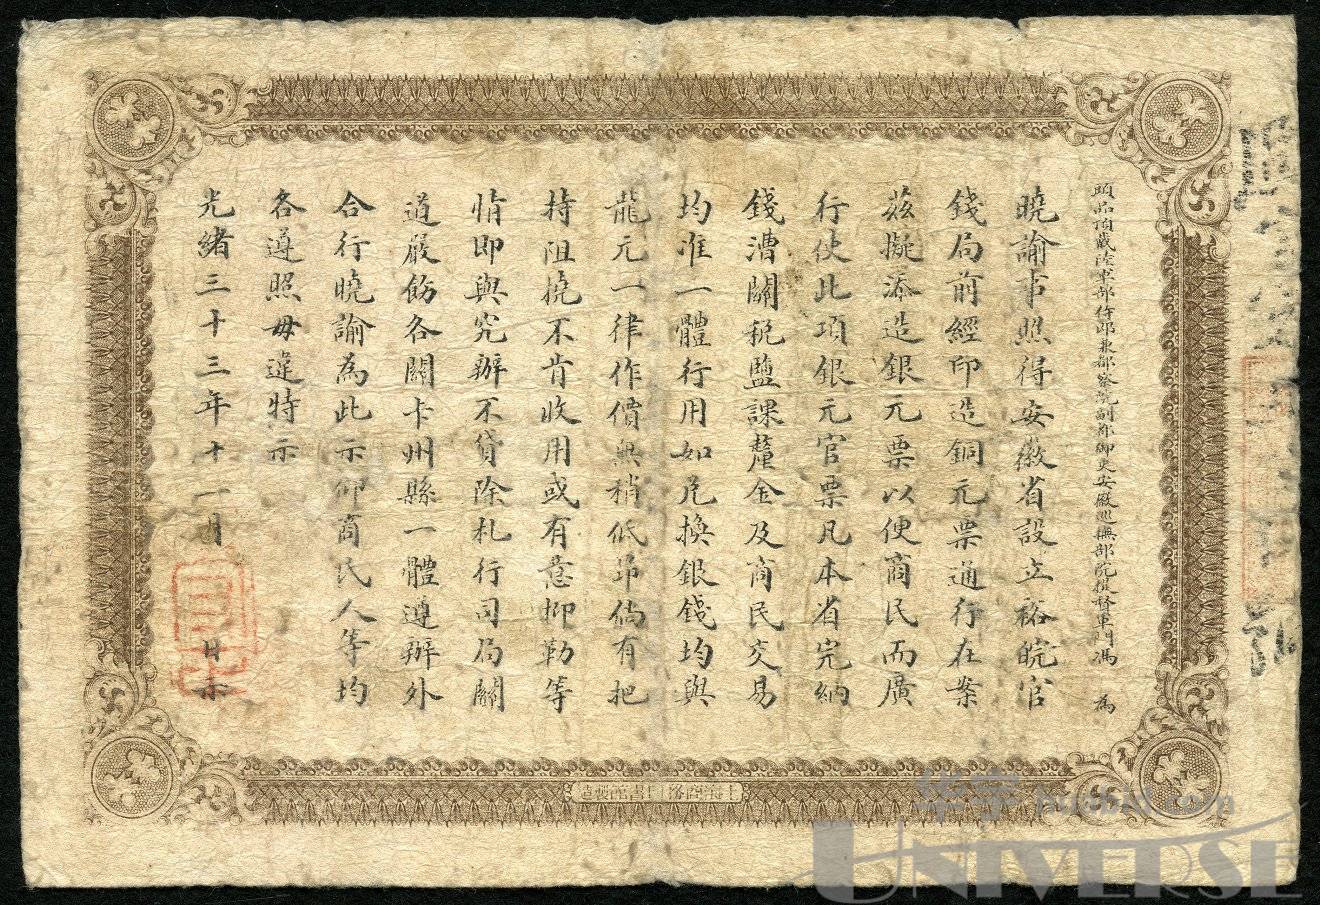 頭品頂戴陸軍部侍郎兼都察院副都御史安徽巡撫部院提督軍門馮 為
曉諭事照得安徽省設立裕皖官
錢局前經印造銅元票通行在案
茲擬添造銀元票以便商民而廣
行使此項銀元官票凡本省完納
錢漕關稅鹽課釐金及商民交易
均准一體行用如兌換銀錢均與
龍元一律作價無稍低昂倘有把
持阻撓不肯收用或有意抑勒等
情即與究辦不貸除札行司局關
道嚴飭各關卡州縣一體遵辦外
合行曉諭為此示仰商民人等均
各遵照毋違特示
光緒三十三年十一月 日示
華宇 huabid.com
UNIVERSE